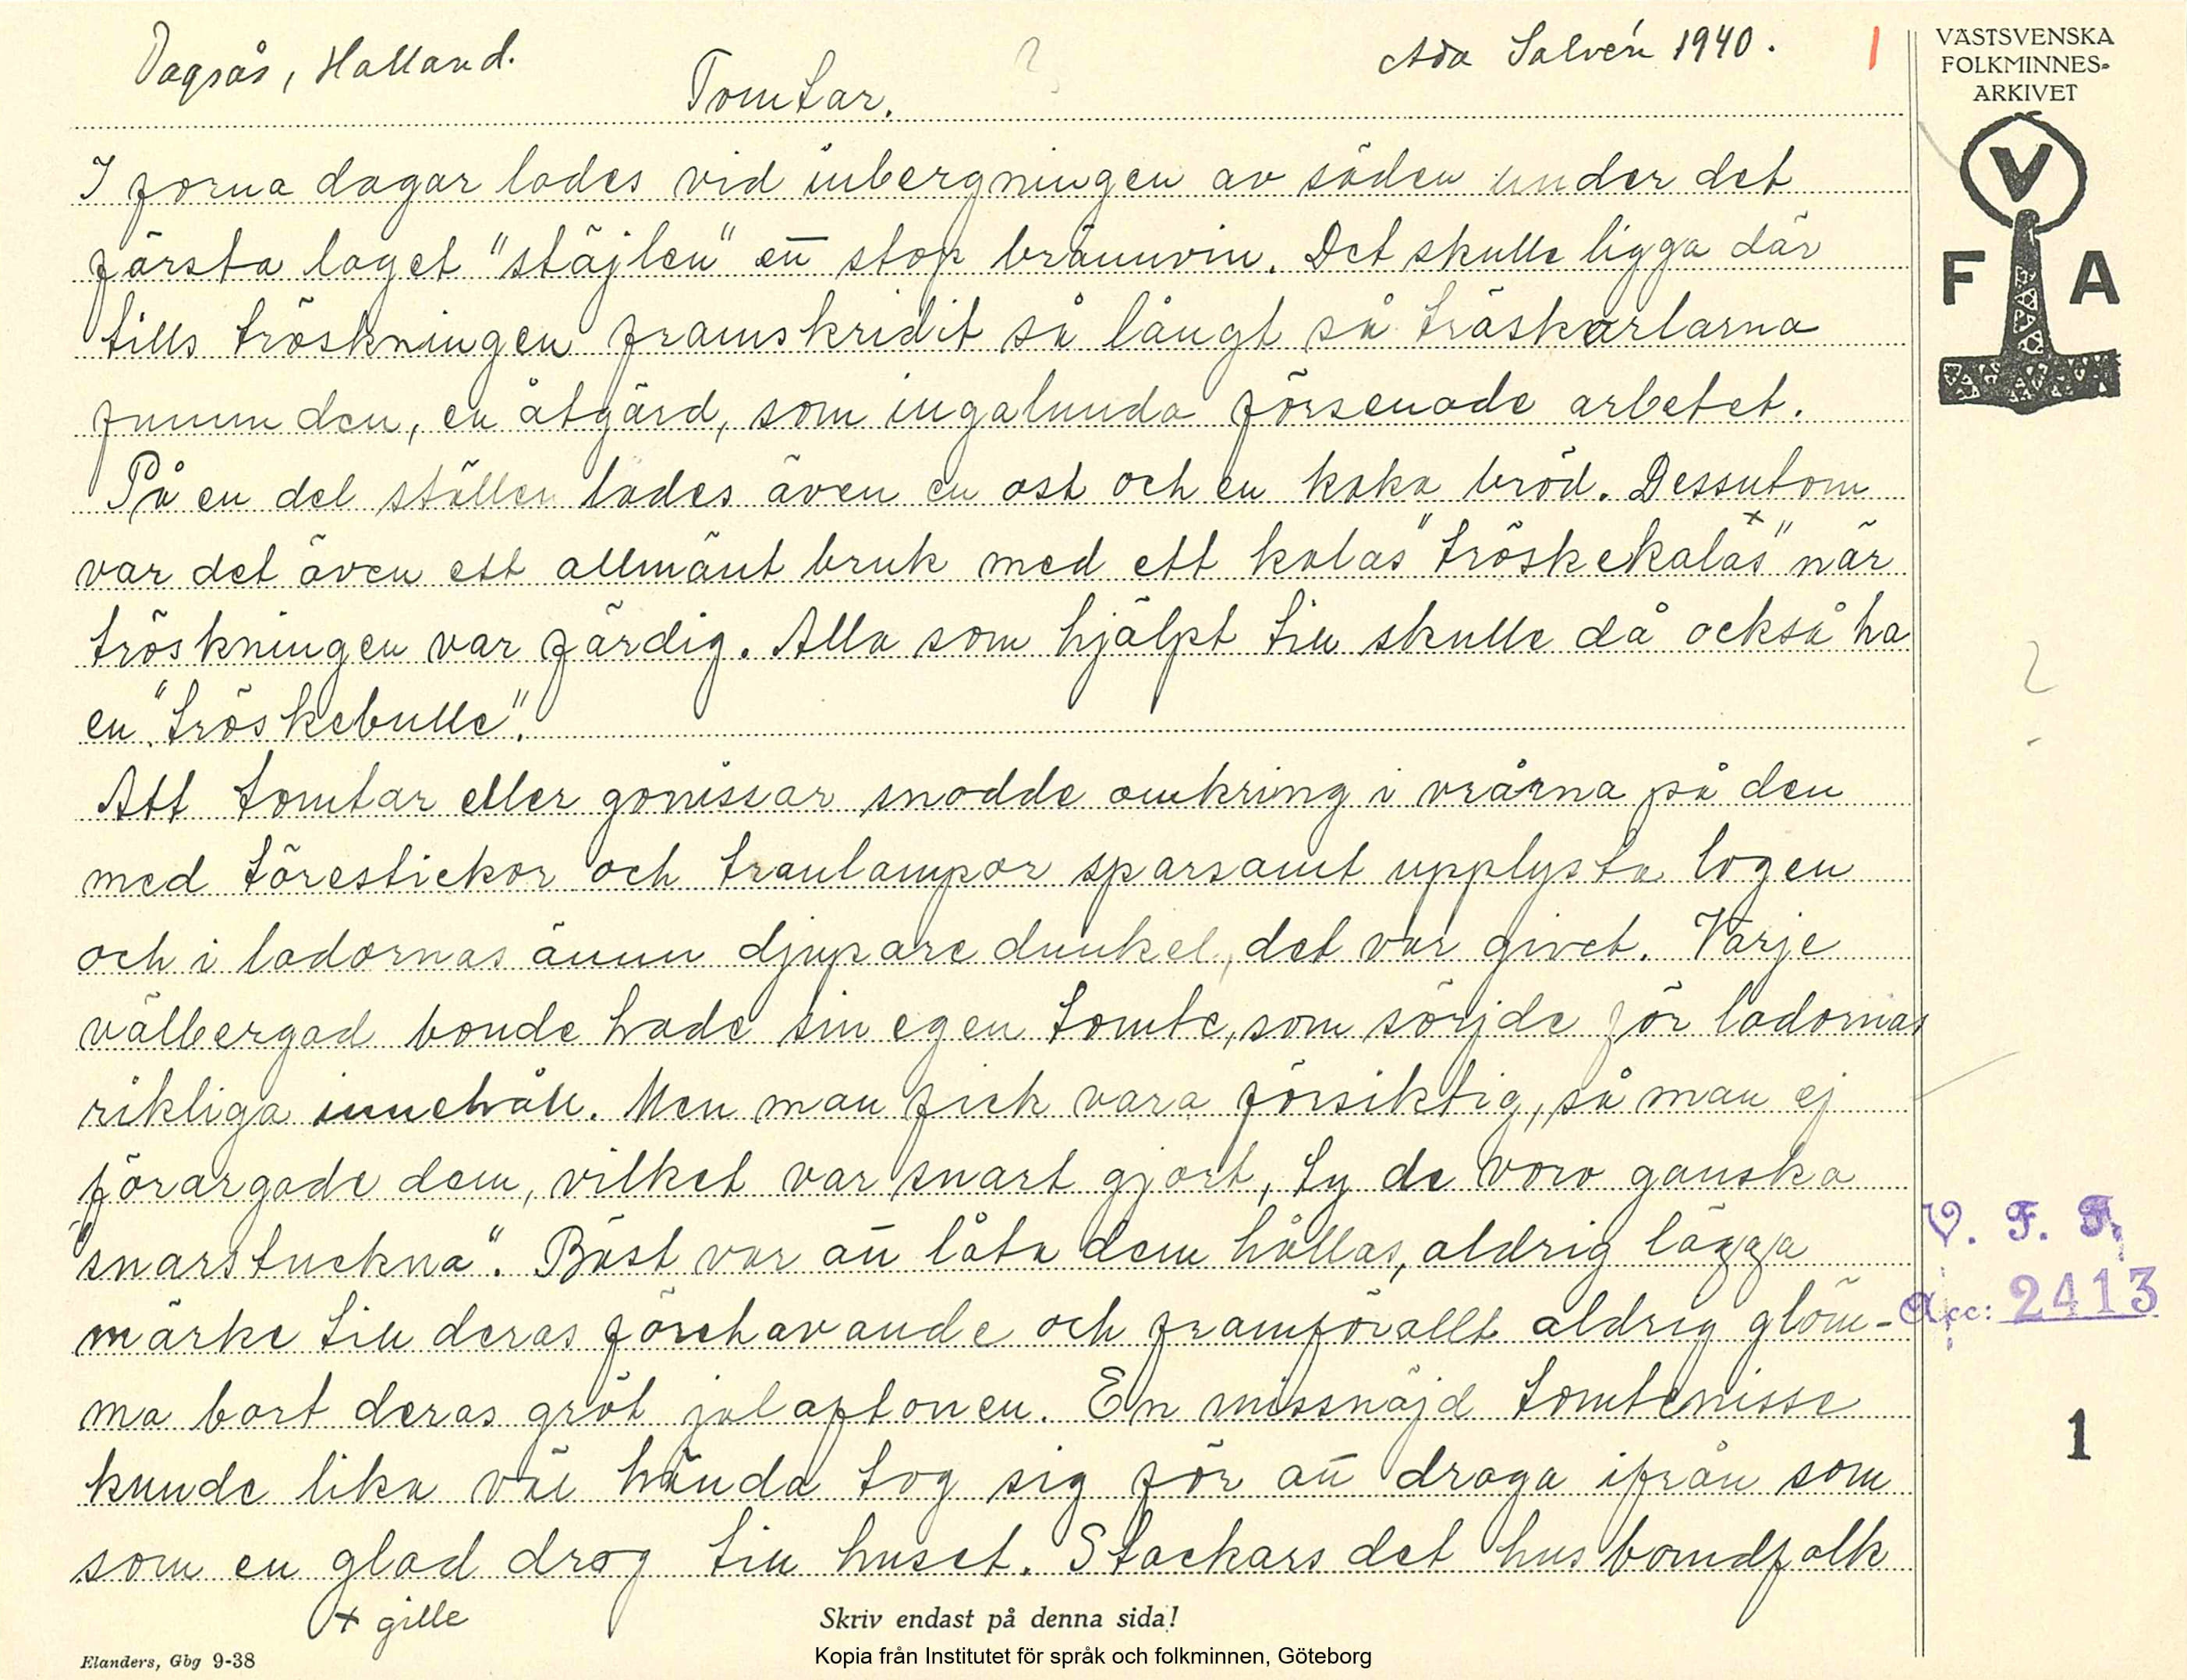 Dagsås, Halland.
Ada Salvén 1940.
1
Tomtar.
VÄSTSVENSKA
FOLKMINNES-
ARKIVET
V
F A
I forna dagar lades vid inbergningen av säden under det
första laget "stäjlen" ett stop brännvin. Det skulle ligga där
tills tröskningen framskridit så långt så tröskarlarna
funno den, en åtgärd, som ingalunda försenade arbetet.
På en del ställen lades även en ost och en kaka bröd. Dessutom
var det även ett allmänt bruk med ett kalas "tröskekalas" x när
tröskningen var färdig. Alla som hjälpt till skulle då också ha
en "tröskebulle".
Att tomtar eller gonissar snodde omkring i vrårna på den
med törestickor och tranlampor sparsamt upplysta logen
och i ladornas ännu djupare dunkel, det var givet. Varje
välbergad bonde hade sin egen tomte, som sörjde för ladornas
rikliga innehåll. Men man fick vara försiktig, så man ej
förargade dem, vilket var snart gjort, ty de voro ganska
"snarstuckna". Bäst var att låta dem hållas, aldrig lägga
märke till deras förehavande och framförallt aldrig glöm-
ma bort deras gröt julaftonen. En missnöjd tomtenisse
kunde lika väl hända tog sig för att draga ifrån som
som en glad drog till huset. Stackars det husbondfolk
x gille
V. F. F.
Acc: 2413
1
Skriv endast på denna sida!
Elanders, Gbg 9-38
Kopia från Institutet för språk och folkminnen, Göteborg